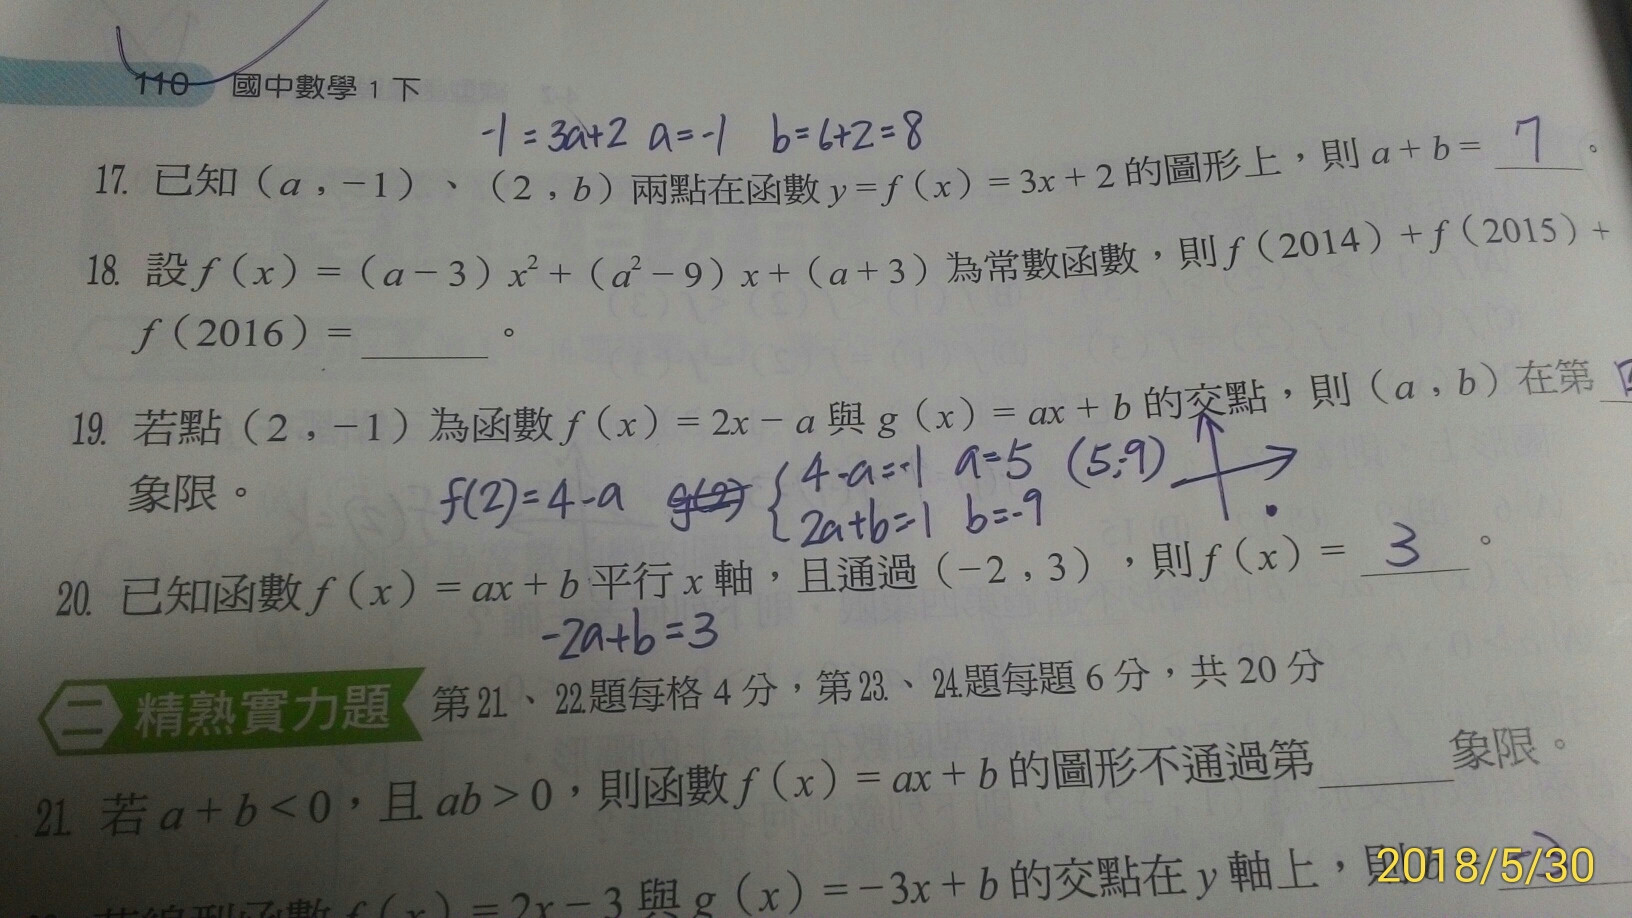 110 國中數學1下
-1=3a+2 a=-1 b=6+2=8
17. 已知(a,-1)、(2,b)兩點在函數y=f(x)=3x+2的圖形上,則a+b= 7 。
18. 設f(x)=(a-3)x²+(a²-9)x+(a+3)為常數函數,則f(2014)+f(2015)+
f(2016)=______。
19. 若點(2,-1)為函數f(x)=2x-a與g(x)=ax+b的交點,則(a,b)在第
象限。 f(2)=4-a g(2) {4-a=-1 a=5 (5,-9)
2a+b=-1 b=-9
20. 已知函數f(x)=ax+b平行x軸,且通過(-2,3),則f(x)= 3 。
-2a+b=3
二 精熟實力題 第21.、22.題每格4分,第23.、24.題每題6分,共20分
21. 若a+b<0,且ab>0,則函數f(x)=ax+b的圖形不通過第______象限。
f(x)=2x-3與g(x)=-3x+b的交點在y軸上,則
2018/5/30